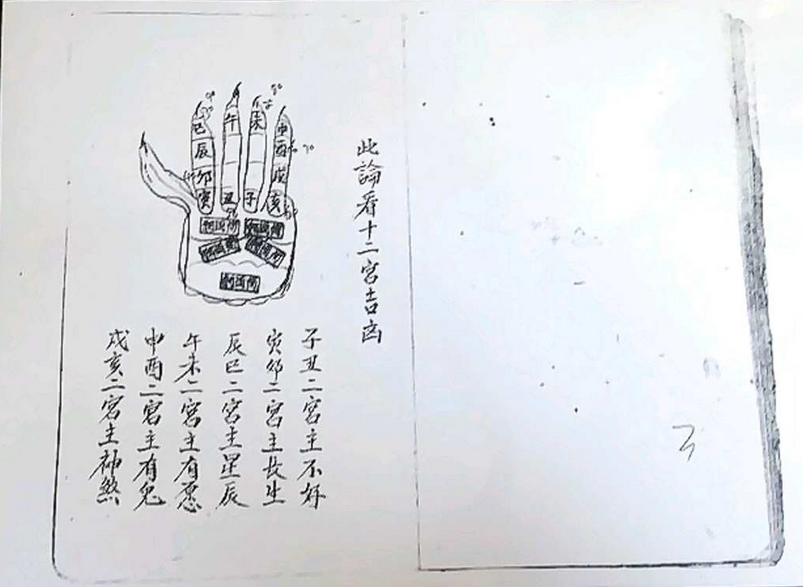 此論看十二宮吉凶
子丑二宮主不好
寅卯二宮主長生
辰巳二宮主星辰
午未二宮主有愿
申酉二宮主有鬼
戌亥二宮主神煞
巳
辰
卯
寅
午
丑
未
子
申
酉
戌
亥